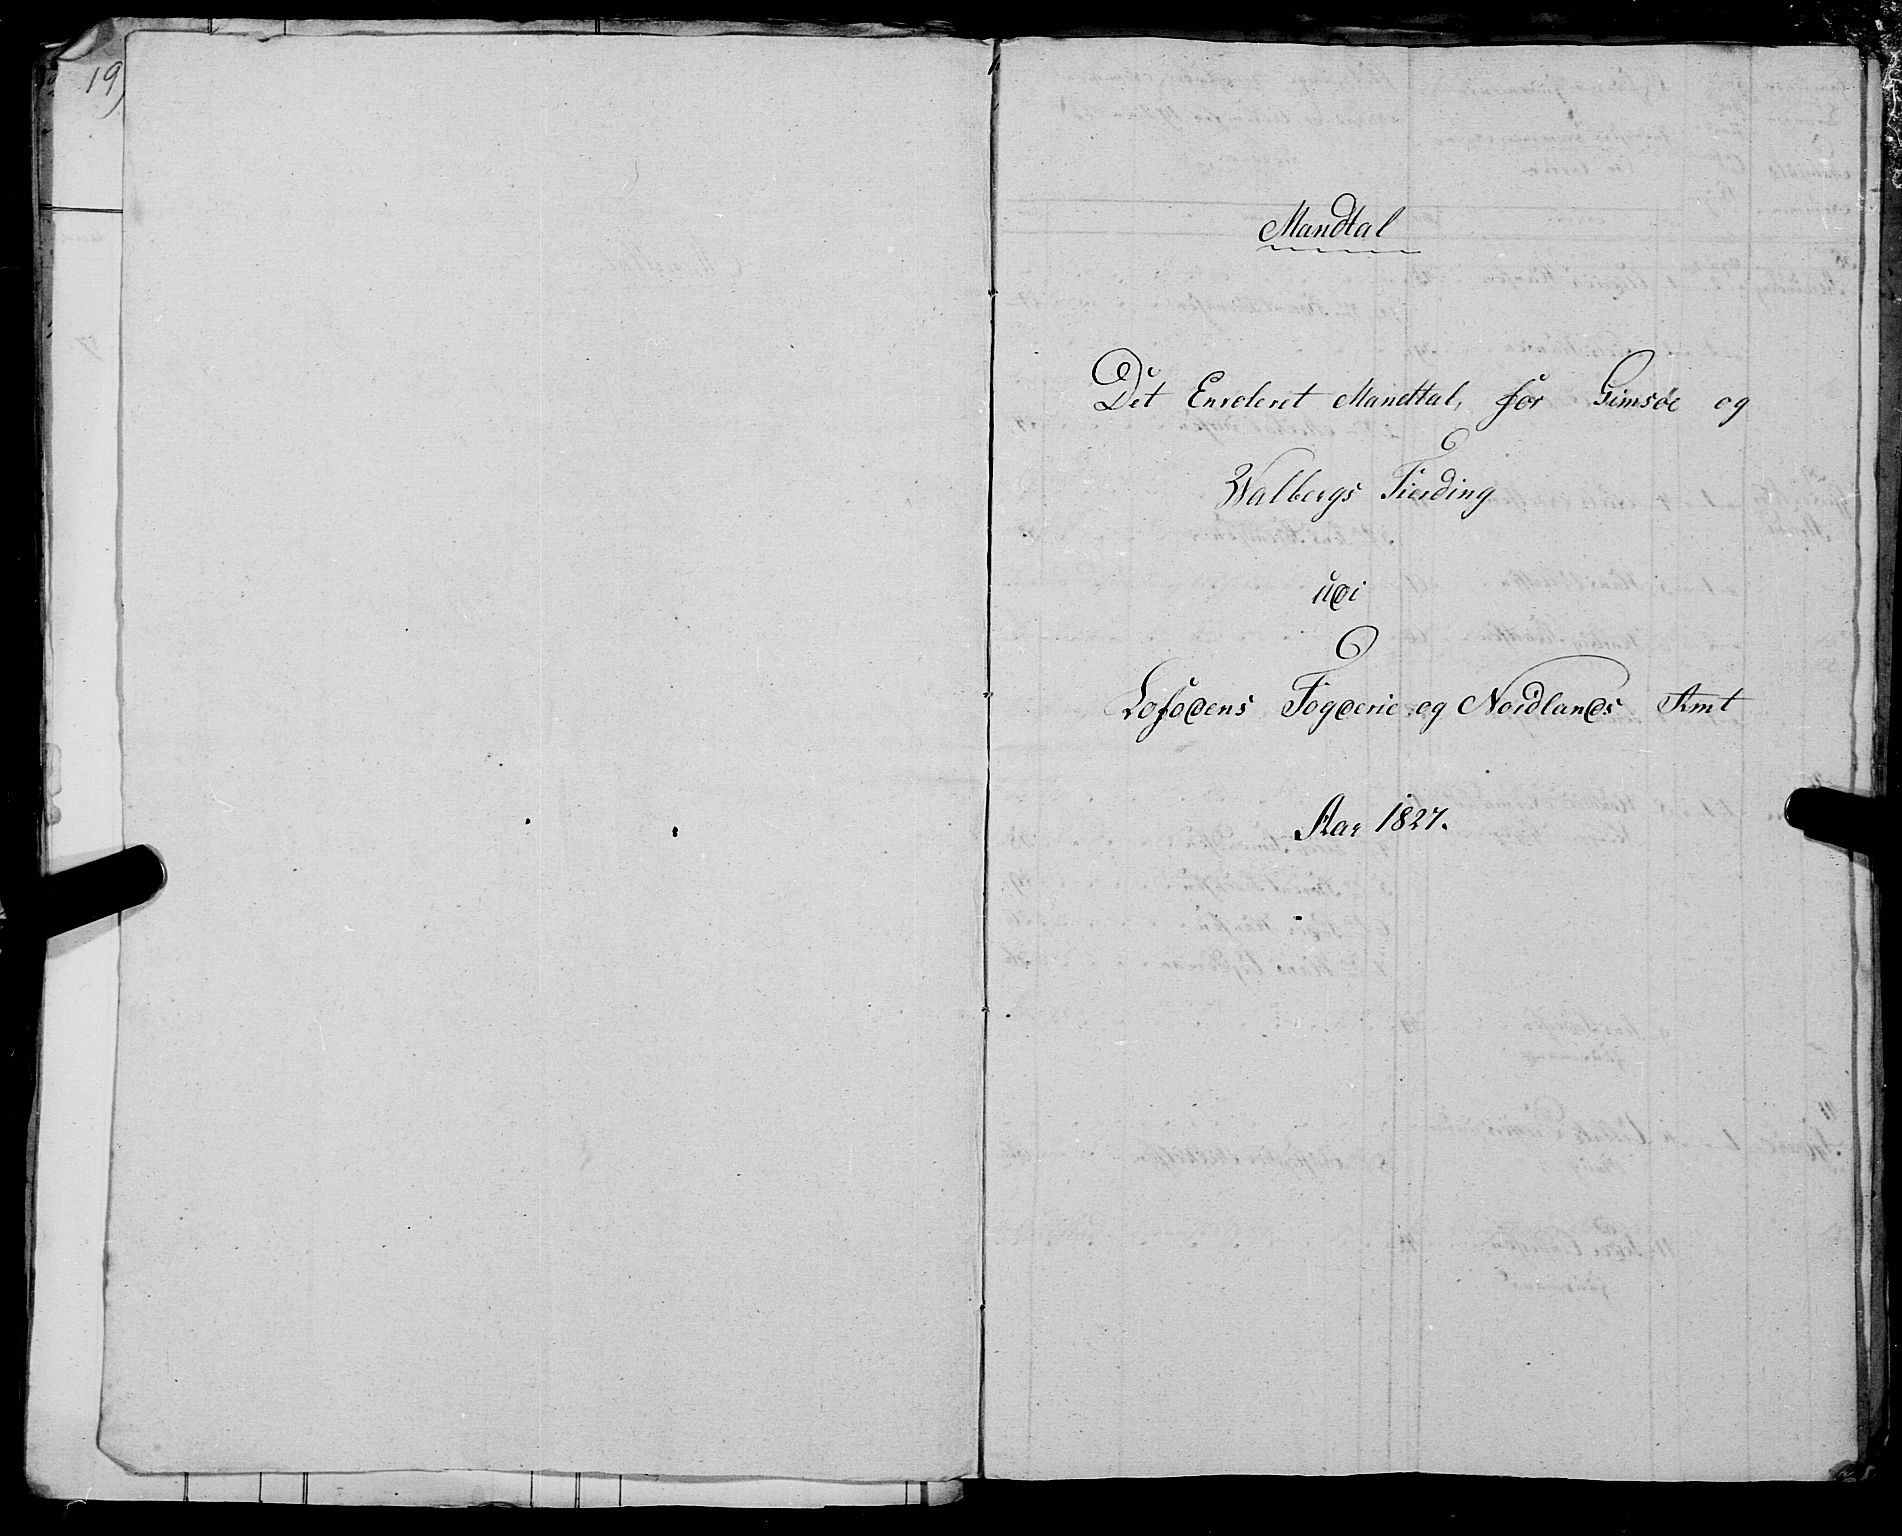 19)
Mandtal
Det Enroleret Mandtal, for Gimsøe og
Walbergs Fierding
udi
Lofodens Fogderie og Nordlands Amt
Aar 1827.